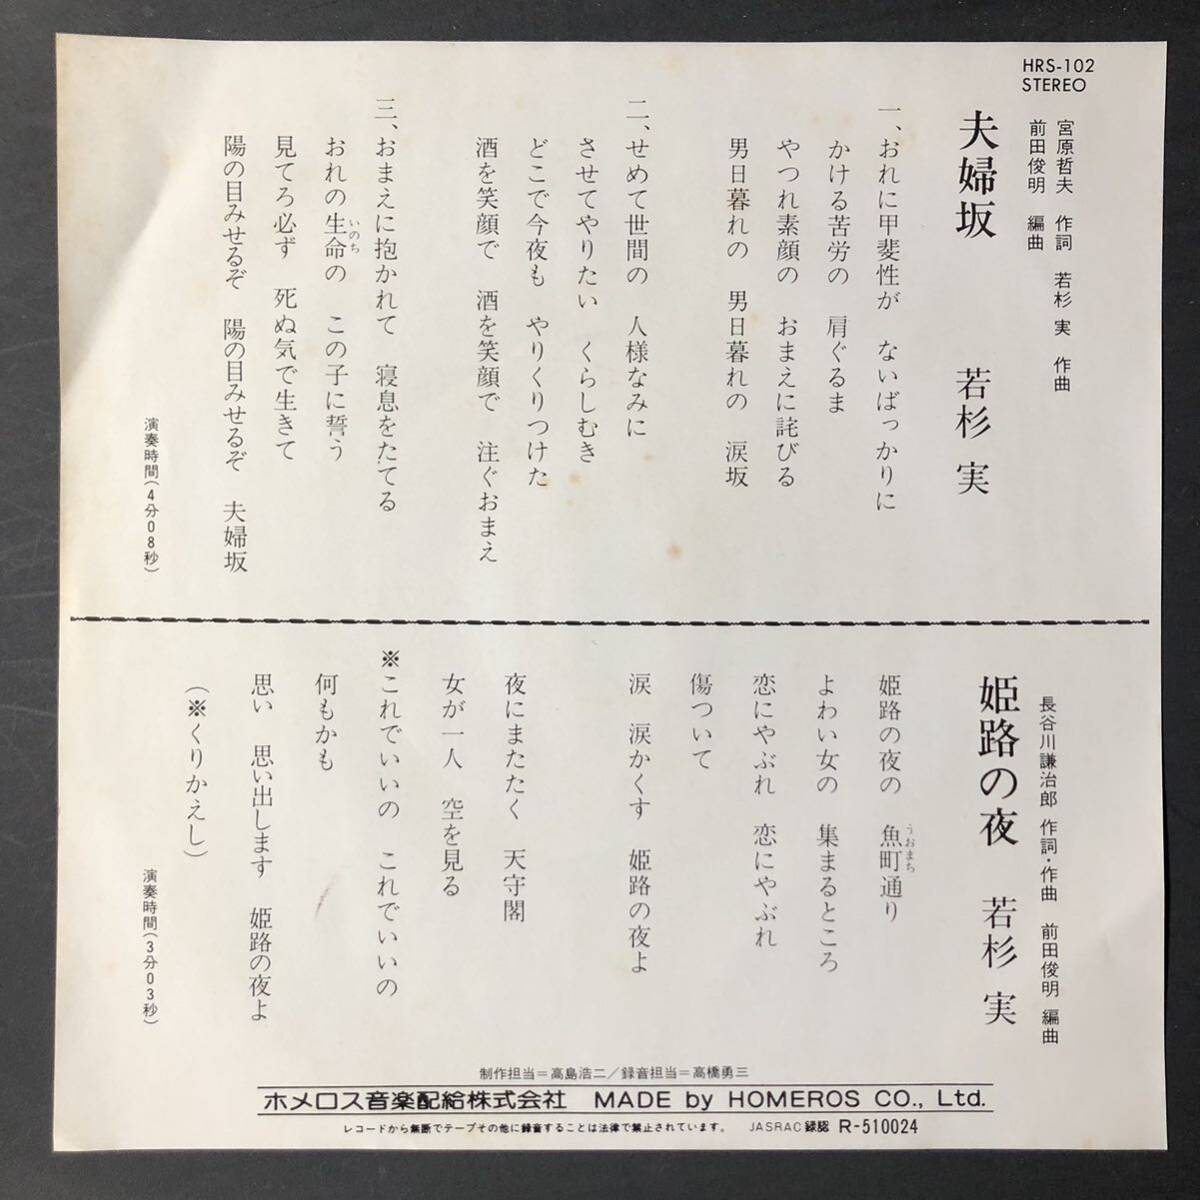 HRS-102
STEREO
宮原哲夫 作詞 若杉 実 作曲
前田俊明 編曲
夫婦坂 若杉 実
一、おれに甲斐性が ないばっかりに
かける苦労の 肩ぐるま
やつれ素顔の おまえに詫びる
男日暮れの 男日暮れの 涙坂
二、せめて世間の 人様なみに
させてやりたい くらしむき
どこで今夜も やりくりつけた
酒を笑顔で 酒を笑顔で 注ぐおまえ
三、おまえに抱かれて 寝息をたてる
おれの生命の この子に誓う
いのち
見てろ必ず 死ぬ気で生きて
陽の目みせるぞ 陽の目みせるぞ 夫婦坂
演奏時間(4分08秒)
長谷川謙治郎 作詞・作曲 前田俊明 編曲
姫路の夜 若杉 実
姫路の夜の 魚町通り
うおまち
よわい女の 集まるところ
恋にやぶれ 恋にやぶれ
傷ついて
涙 涙かくす 姫路の夜よ
夜にまたたく 天守閣
女が一人 空を見る
※これでいいの これでいいの
何もかも
思い 思い出します 姫路の夜よ
(※くりかえし)
演奏時間(3分03秒)
制作担当=高島浩二/録音担当=高橋勇三
ホメロス音楽配給株式会社 MADE by HOMEROS CO., Ltd.
レコードから無断でテープその他に録音することは法律で禁止されています。 JASRAC録認 R-510024